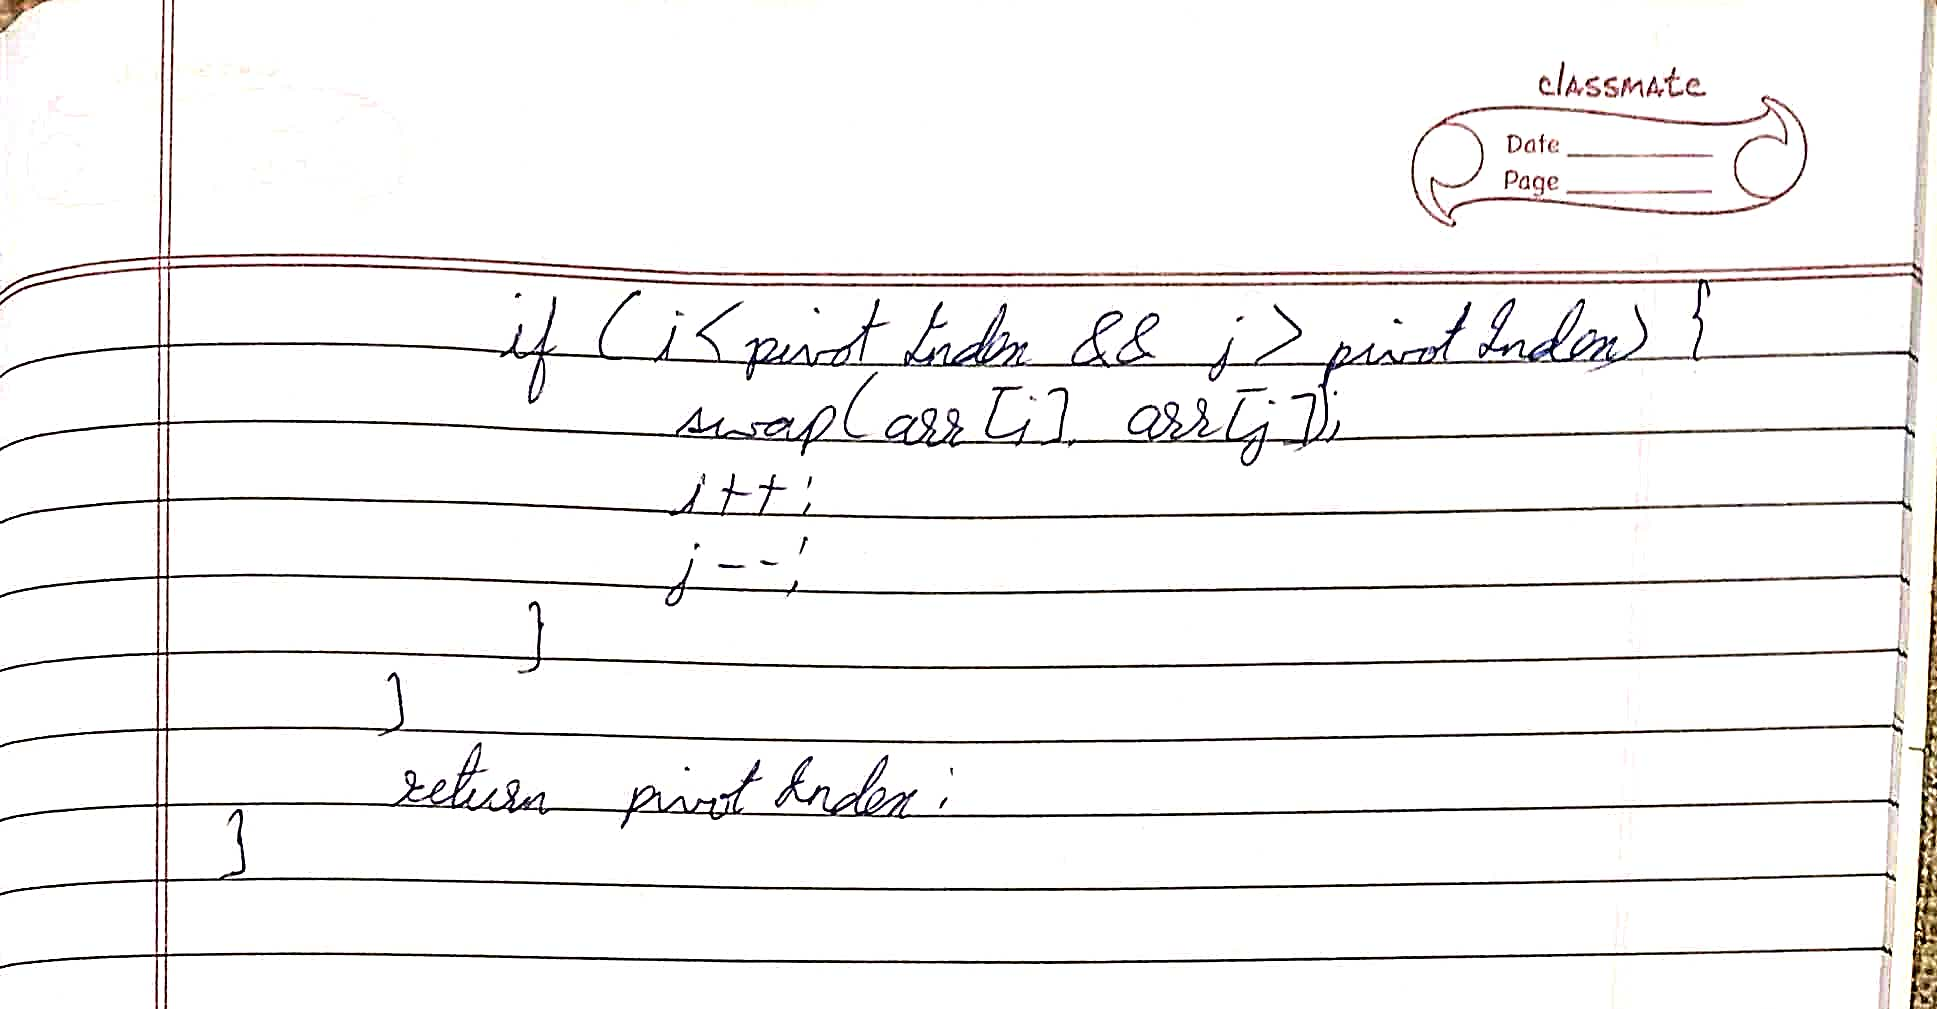 classmate
Date
Page
if (i < pivotIndex && j > pivotIndex) {
swap(arr[i], arr[j]);
i++;
j--;
}
}
return pivotIndex;
}